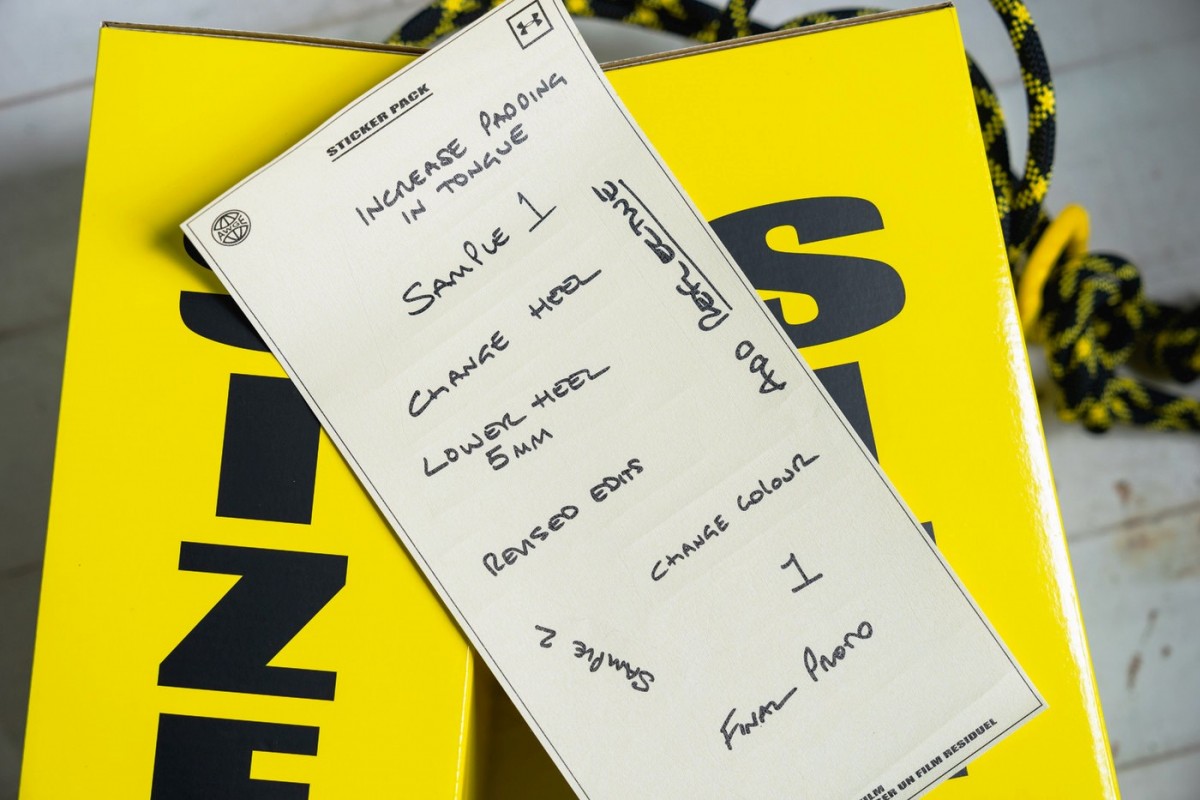 STICKER PACK
AWGE
INCREASE PADDING
IN TONGUE
SAMPLE 1
CHANGE HEEL
LOWER HEEL
5MM
REVISED EDITS
SAMPLE 2
ADD
REFLECTIVE
CHANGE COLOUR
1
FINAL PROTO
FILM
ER UN FILM RESIDUEL
S
I
Z
E
S